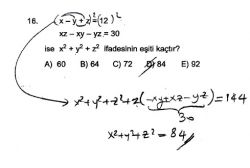 16. (x – y + z)² = (12)²
xz – xy – yz = 30
ise x² + y² + z² ifadesinin eşiti kaçtır?
A) 60 B) 64 C) 72 D) 84 E) 92
→ x²+y²+z²+2(-xy+xz-yz) = 144
30
x²+y²+z² = 84